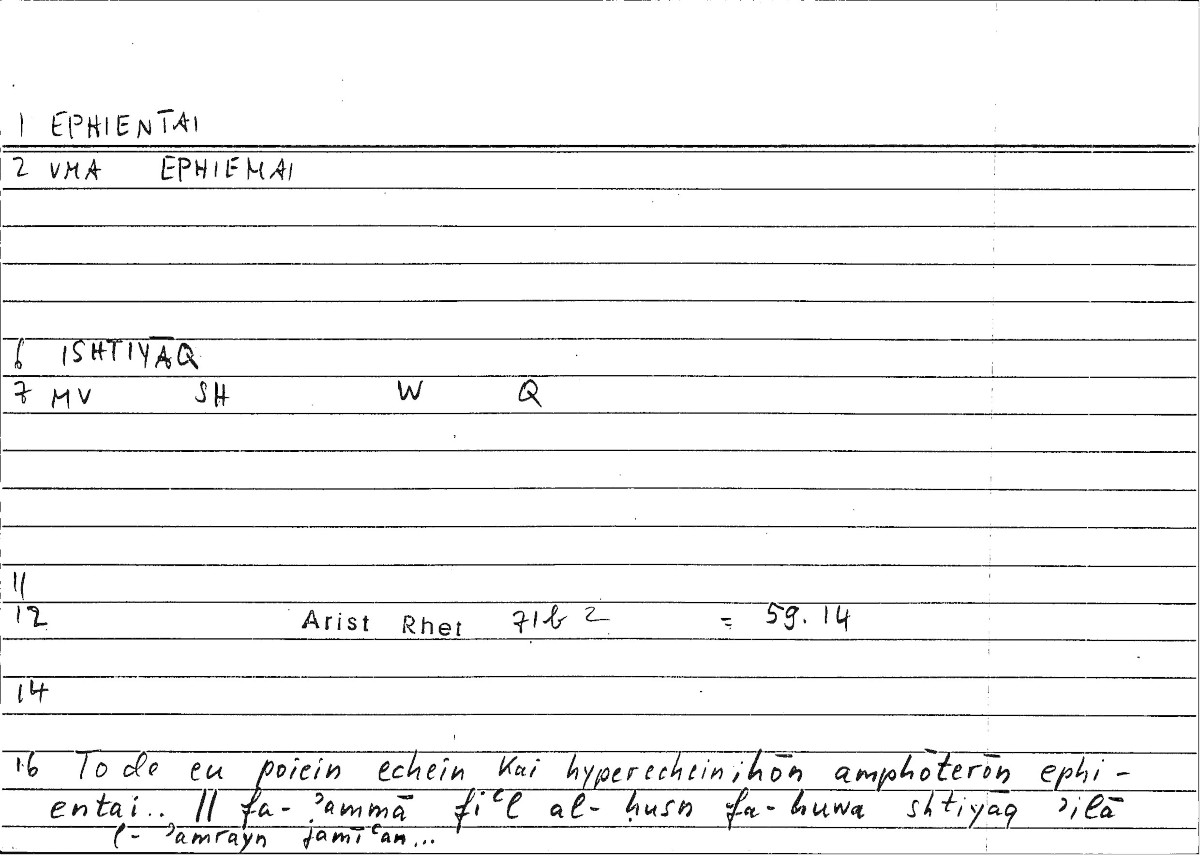 1 EPHIENTAI
2 VMA EPHIEMAI
6 ISHTIYĀQ
7 MV SH W Q
11
12 Arist Rhet 71b 2 = 59.14
14
16 To de eu poiein echein kai hyperechein, hōn amphōterōn ephi-
entai.. || fa-ʾammā fiʿl al-ḥusn fa-huwa shtiyāq ʾilā
l-ʾamrayn jamīʿan...